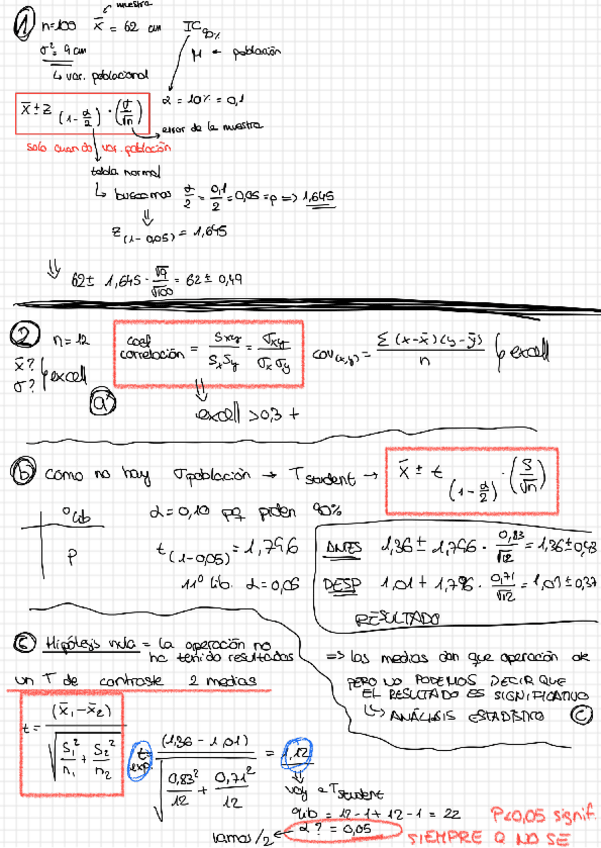 ① muestra
n=100 x̄ = 62 cm IC 90%
σ² = 9 cm μ ← población
↳ var. poblacional
x̄ ± z (1 - α/2) · (σ/√n) α = 10% = 0,1
error de la muestra
solo cuando var. población
tabla normal
↳ buscamos α/2 = 0,1/2 = 0,05 = p => 1,645
⇓
z (1 - 0,05) = 1,645
⇓ 62 ± 1,645 · √9/√100 = 62 ± 0,49
② n = 12
x̄?
σ? excell
coef correlación = Sxy/SxSy = σxy/σxσy
cov(x,y) = Σ (x-x̄)(y-ȳ)/n excell
ⓐ ⇓
excell > 0,3 +
ⓑ como no hay σ población → T student → x̄ ± t (1 - α/2) · (S/√n)
º lib α = 0,10 pq piden 90%
p t (1 - 0,05) = 1,796
11º lib. α = 0,05
ANTES 1,36 ± 1,796 · 0,83/√12 = 1,36 ± 0,43
DESP 1,01 + 1,796 · 0,71/√12 = 1,01 ± 0,37
RESULTADO
ⓒ Hipótesis nula = la operación no
ha tenido resultados
un T de contraste 2 medias
=> las medias dan que operación ok
PERO NO PODEMOS DECIR QUE
EL RESULTADO ES SIGNIFICATIVO
↳ ANÁLISIS ESTADÍSTICO ⓒ
t = (x̄₁ - x̄₂) / √(S₁²/n₁ + S₂²/n₂)
t exp. = (1,36 - 1,01) / √(0,83²/12 + 0,71²/12) = 1,12
↓
voy a T student
glib = 12 - 1 + 12 - 1 = 22
α? = 0,05
P<0,05 signif.
SIEMPRE Q NO SE